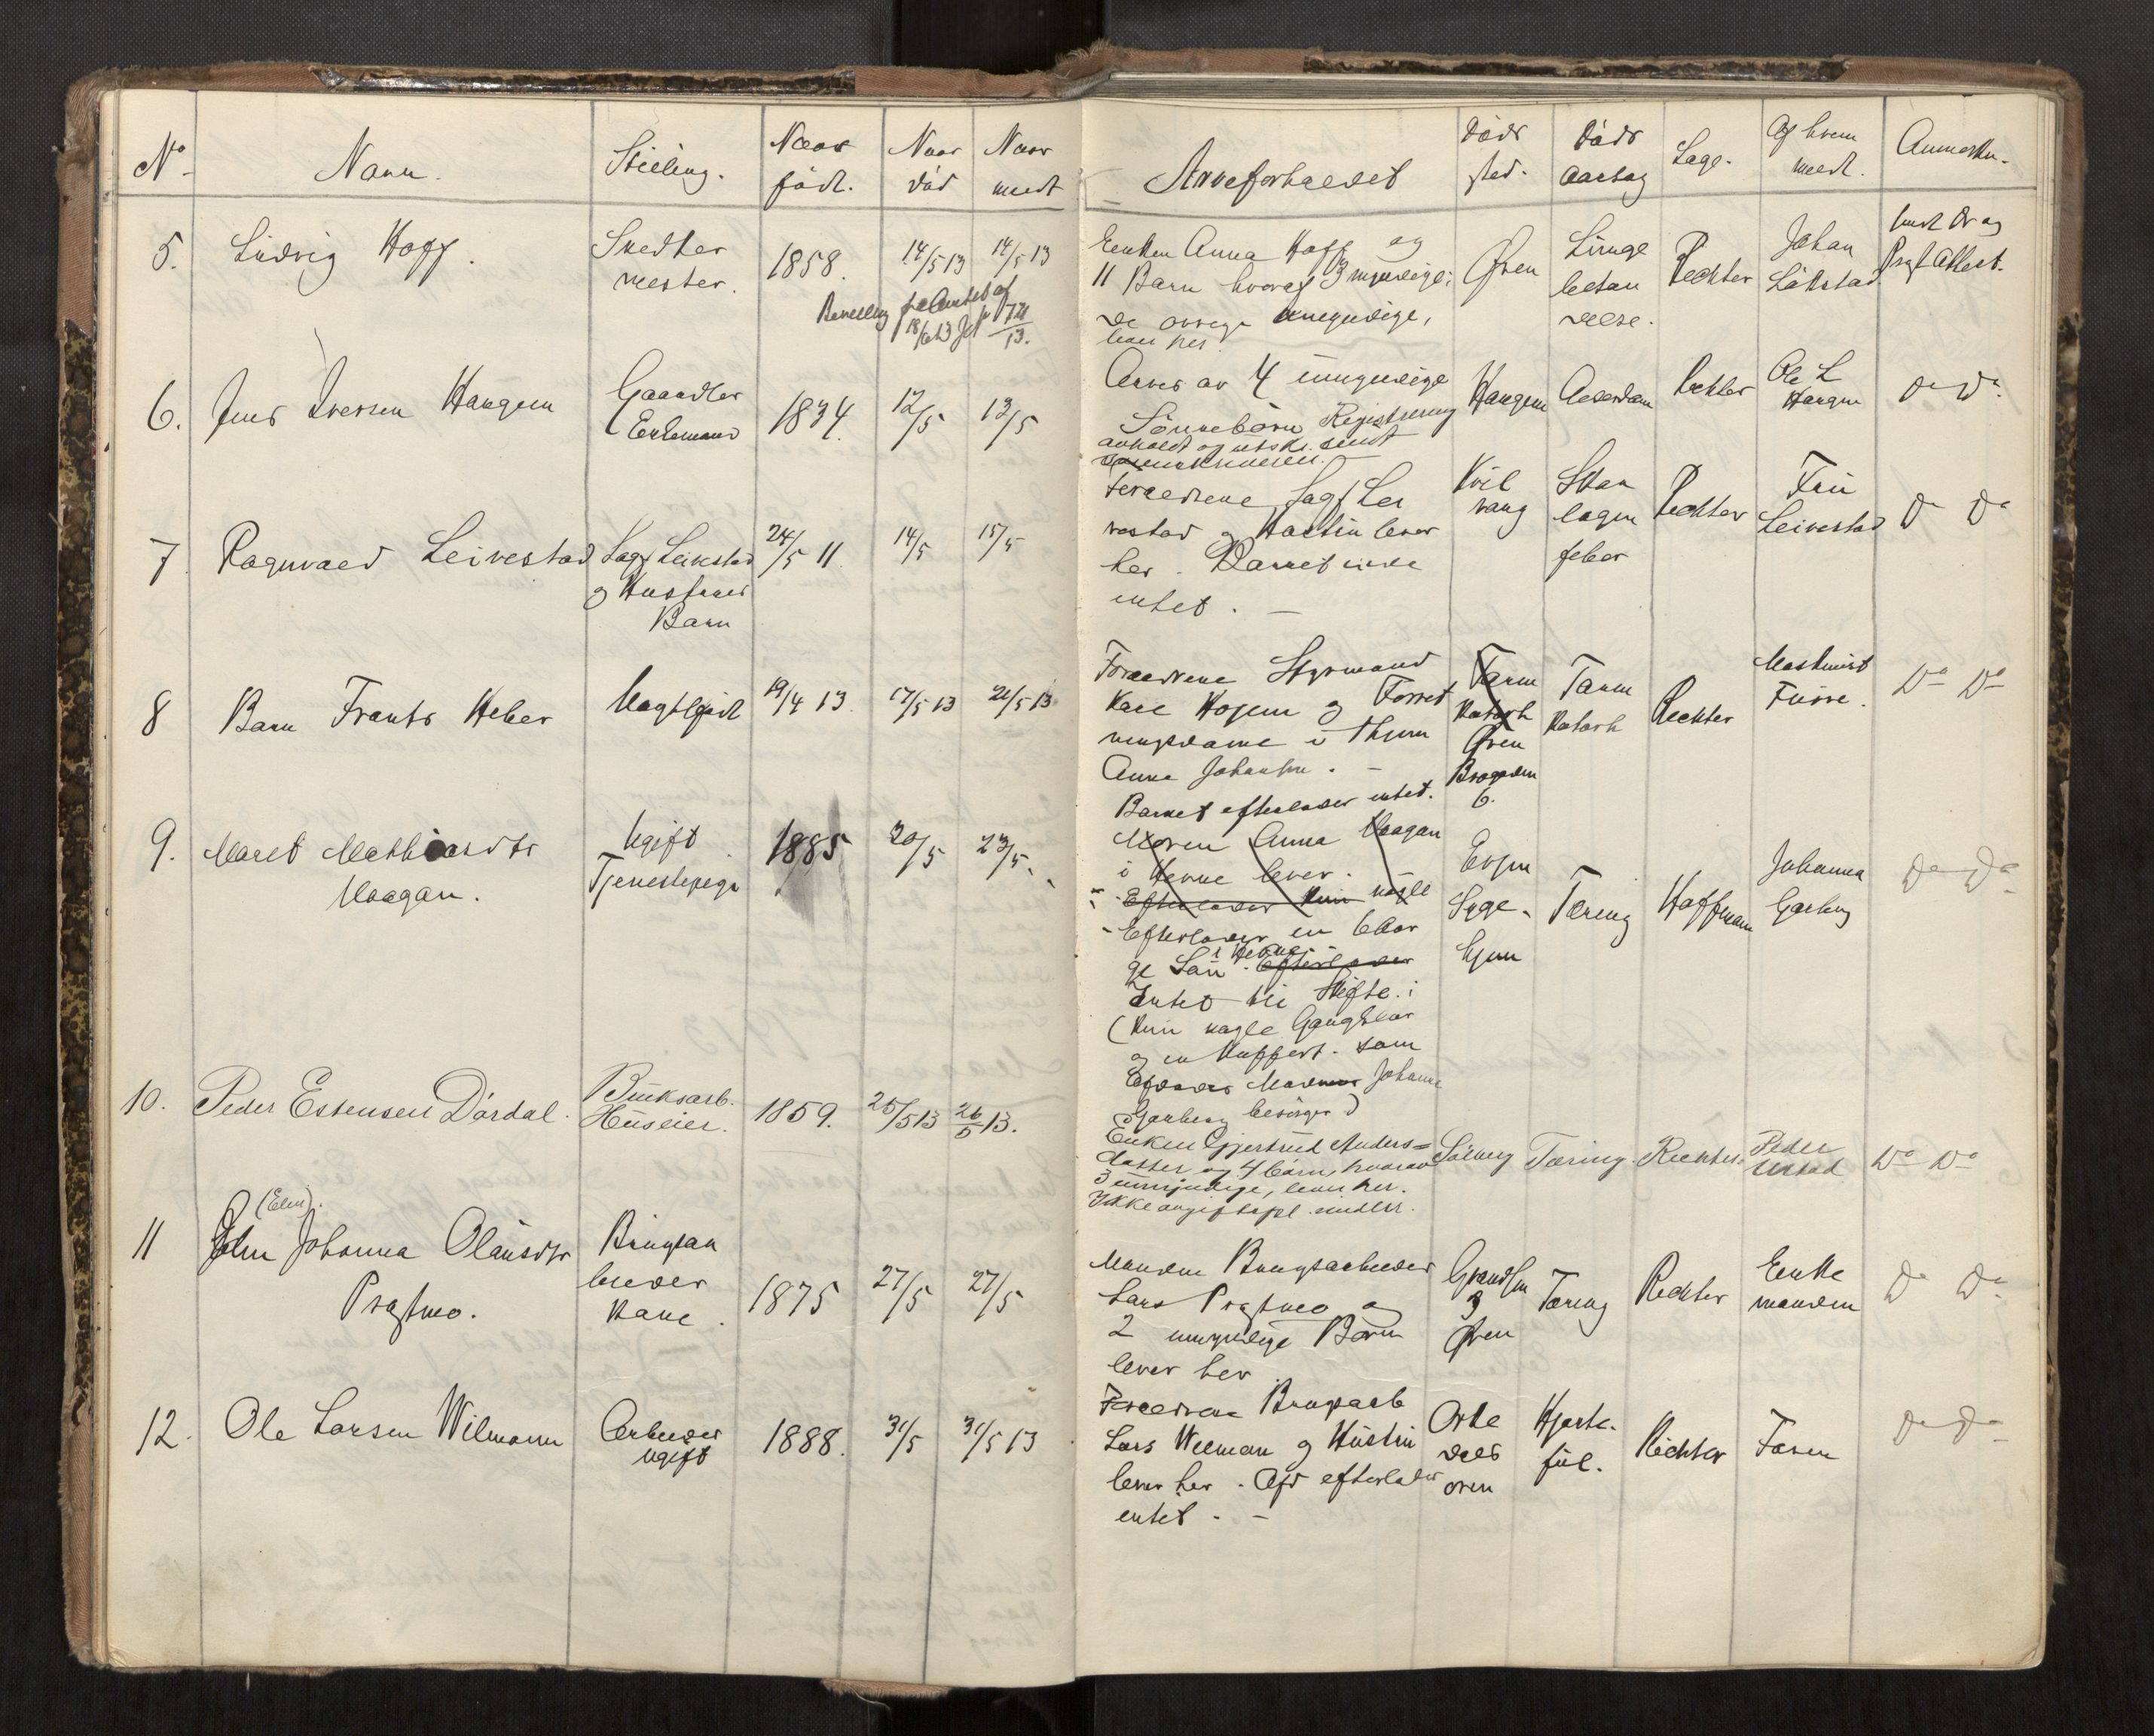 No Navn. Stilling. Naar født. Naar død Naar meldt Arveforholdet Døds sted. Døds aarsag Læge. Af hvem meldt. Anmerkn.
5. Ludvig Hoff. Snedker mester. 1858. 14/5 13 14/5 13
Bevilling fra Amtet af
18/6 13
Enken Anna Hoff og
11 Barn hvoraf 3 myndige;
de øvrige umyndige,
lever her.
Øren
Lunge
betæn
delse.
Richter
Johan
Løkstad
Præst Attest.
6. Jens Iversen Haugen Gaardbr Enkemand 1834. 12/5 13/5
Arves av 4 umyndige
Sønnebørn Registrering
avholdt og utskr. sendt
Haugen Alderdom Richter Ole L Haugen Do Do
7 Ragnvald Leivestad Sagf Leivestad og Hustrues Barn 24/5 11 14/5 15/5
Forældrene Sagf Lei
vestad og Hustru lever
her. Barnet eide
intet. —
Kvil
vang
Skar
lagen
feber
Richter
Fru
Leivestad
Do Do
8 Barn Frants Heber Uægtefødt 19/4 13. 17/5 13 21/5 13
Forældrene Styrmand
Kare Hopen og Forret
ningsdame i Thjem
Anna Johansen. —
Barnet efterlader intet.
Tarm
Katarh
Øren
Brogaden
6.
Tarm
Katarh
Richter
Maskinist
Furre.
Do Do
9. Maret Mathiasdtr Haagan. Ugift Tjenestepige 1885 20/5 23/5.
Moren Anna Haagan
i Hevne lever.
Efterlader kun nogle
Efterlader en 6 aar
i Hevne
gl Søn. Efterlader
Intet til Skifte. i
(Kun nogle Gangklær
og en Kuffert. som
Johanna
Garberg besørger)
Evjen
Syge-
hjem
Tæring
Hoffmann
Johanna
Garberg
Do Do
10. Peder Estensen Dørdal. Bruksarb. Huseier. 1859. 25/5 13 26/5 13.
Enken Gjertrud Anders=
datter og 4 børn, hvorav
3 umyndige, lever her.
Ikke avgiftspl. midler.
Solberg Tæring. Richter. Peder Ustad Do Do
(Elen).
11 Elen Johanna Olausdtr Prøstmo. Brugsar beider Kone. 1875 27/5 27/5
Manden Brugsarbeider
Lars Prøstmo og
2 umyndige Børn
lever her
Grandsen
3
Øren
Tæring
Richter
Enke
manden
Do Do
12. Ole Larsen Wilmann Arbeider ugift 1888. 31/5 31/5 13
Forældrene Brugsarb
Lars Wilman og Hustru
lever her. Afd efterlader
intet. —
Orke
dals
øren
Hjerte.
feil.
Richter
Faren
Do Do